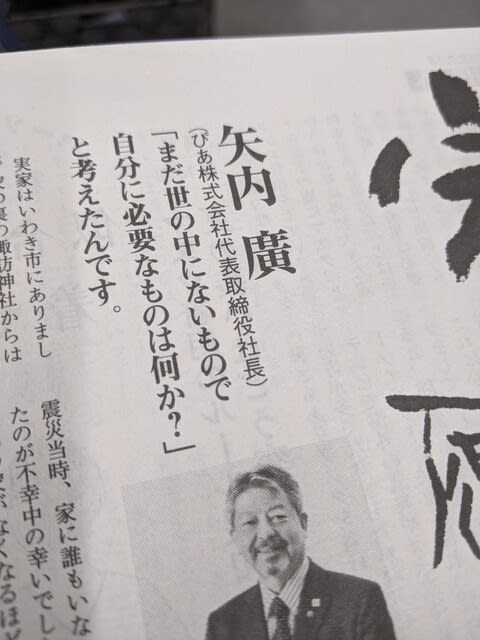 矢内 廣
(ぴあ株式会社代表取締役社長)
「まだ世の中にないもので
自分に必要なものは何か?」
と考えたんです。
実家はいわき市にありまし
の裏の諏訪神社からは
震災当時、家に誰もいな
たのが不幸中の幸いでし
なくなるほど